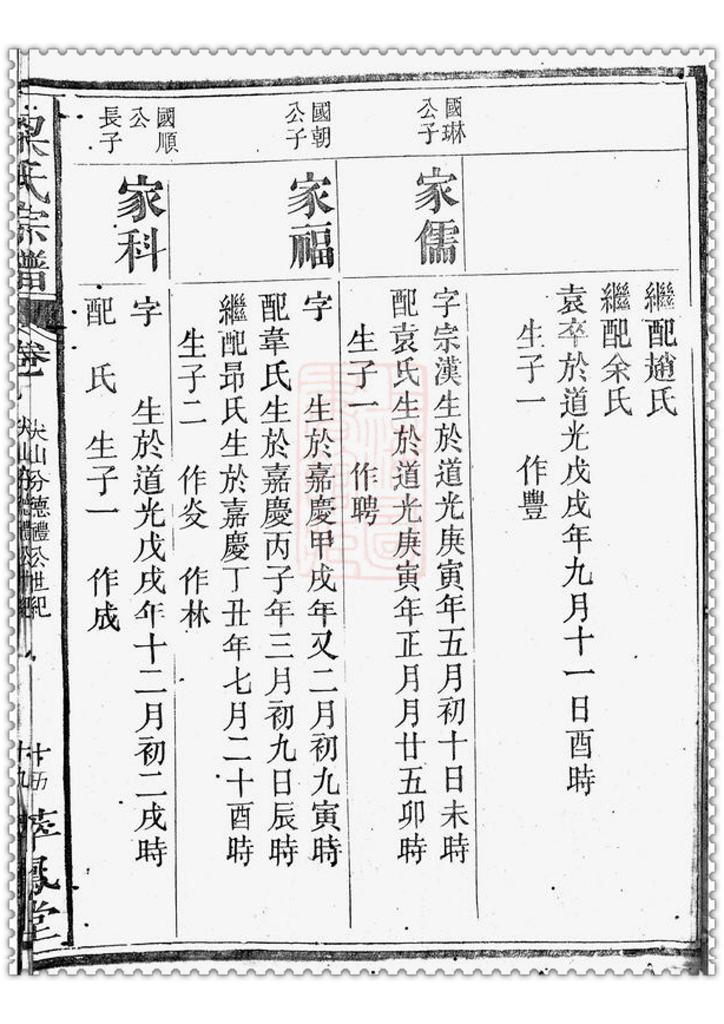 繼配趙氏
繼配余氏
袁卒於道光戊戌年九月十一日酉時
生子一 作豐
國琳
公子
家儒
字宗漢生於道光庚寅年五月初十日未時
配袁氏生於道光庚寅年正月月廿五卯時
生子一 作聘
國朝
公子
家福
字 生於嘉慶甲戌年又二月初九寅時
配韋氏生於嘉慶丙子年三月初九日辰時
繼配昂氏生於嘉慶丁丑年七月二十酉時
生子二 作炎 作林
國順
公
長子
家科
字 生於道光戊戌年十二月初二戌時
配 氏 生子一 作成
氏宗譜
卷
尖山分德禮公世紀
堂